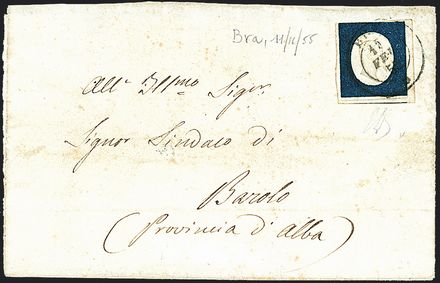 Bra, 11/II/55
All' Ill.mo Sigor.
Signor Sindaco di
Barolo
(Provincia d'Alba)